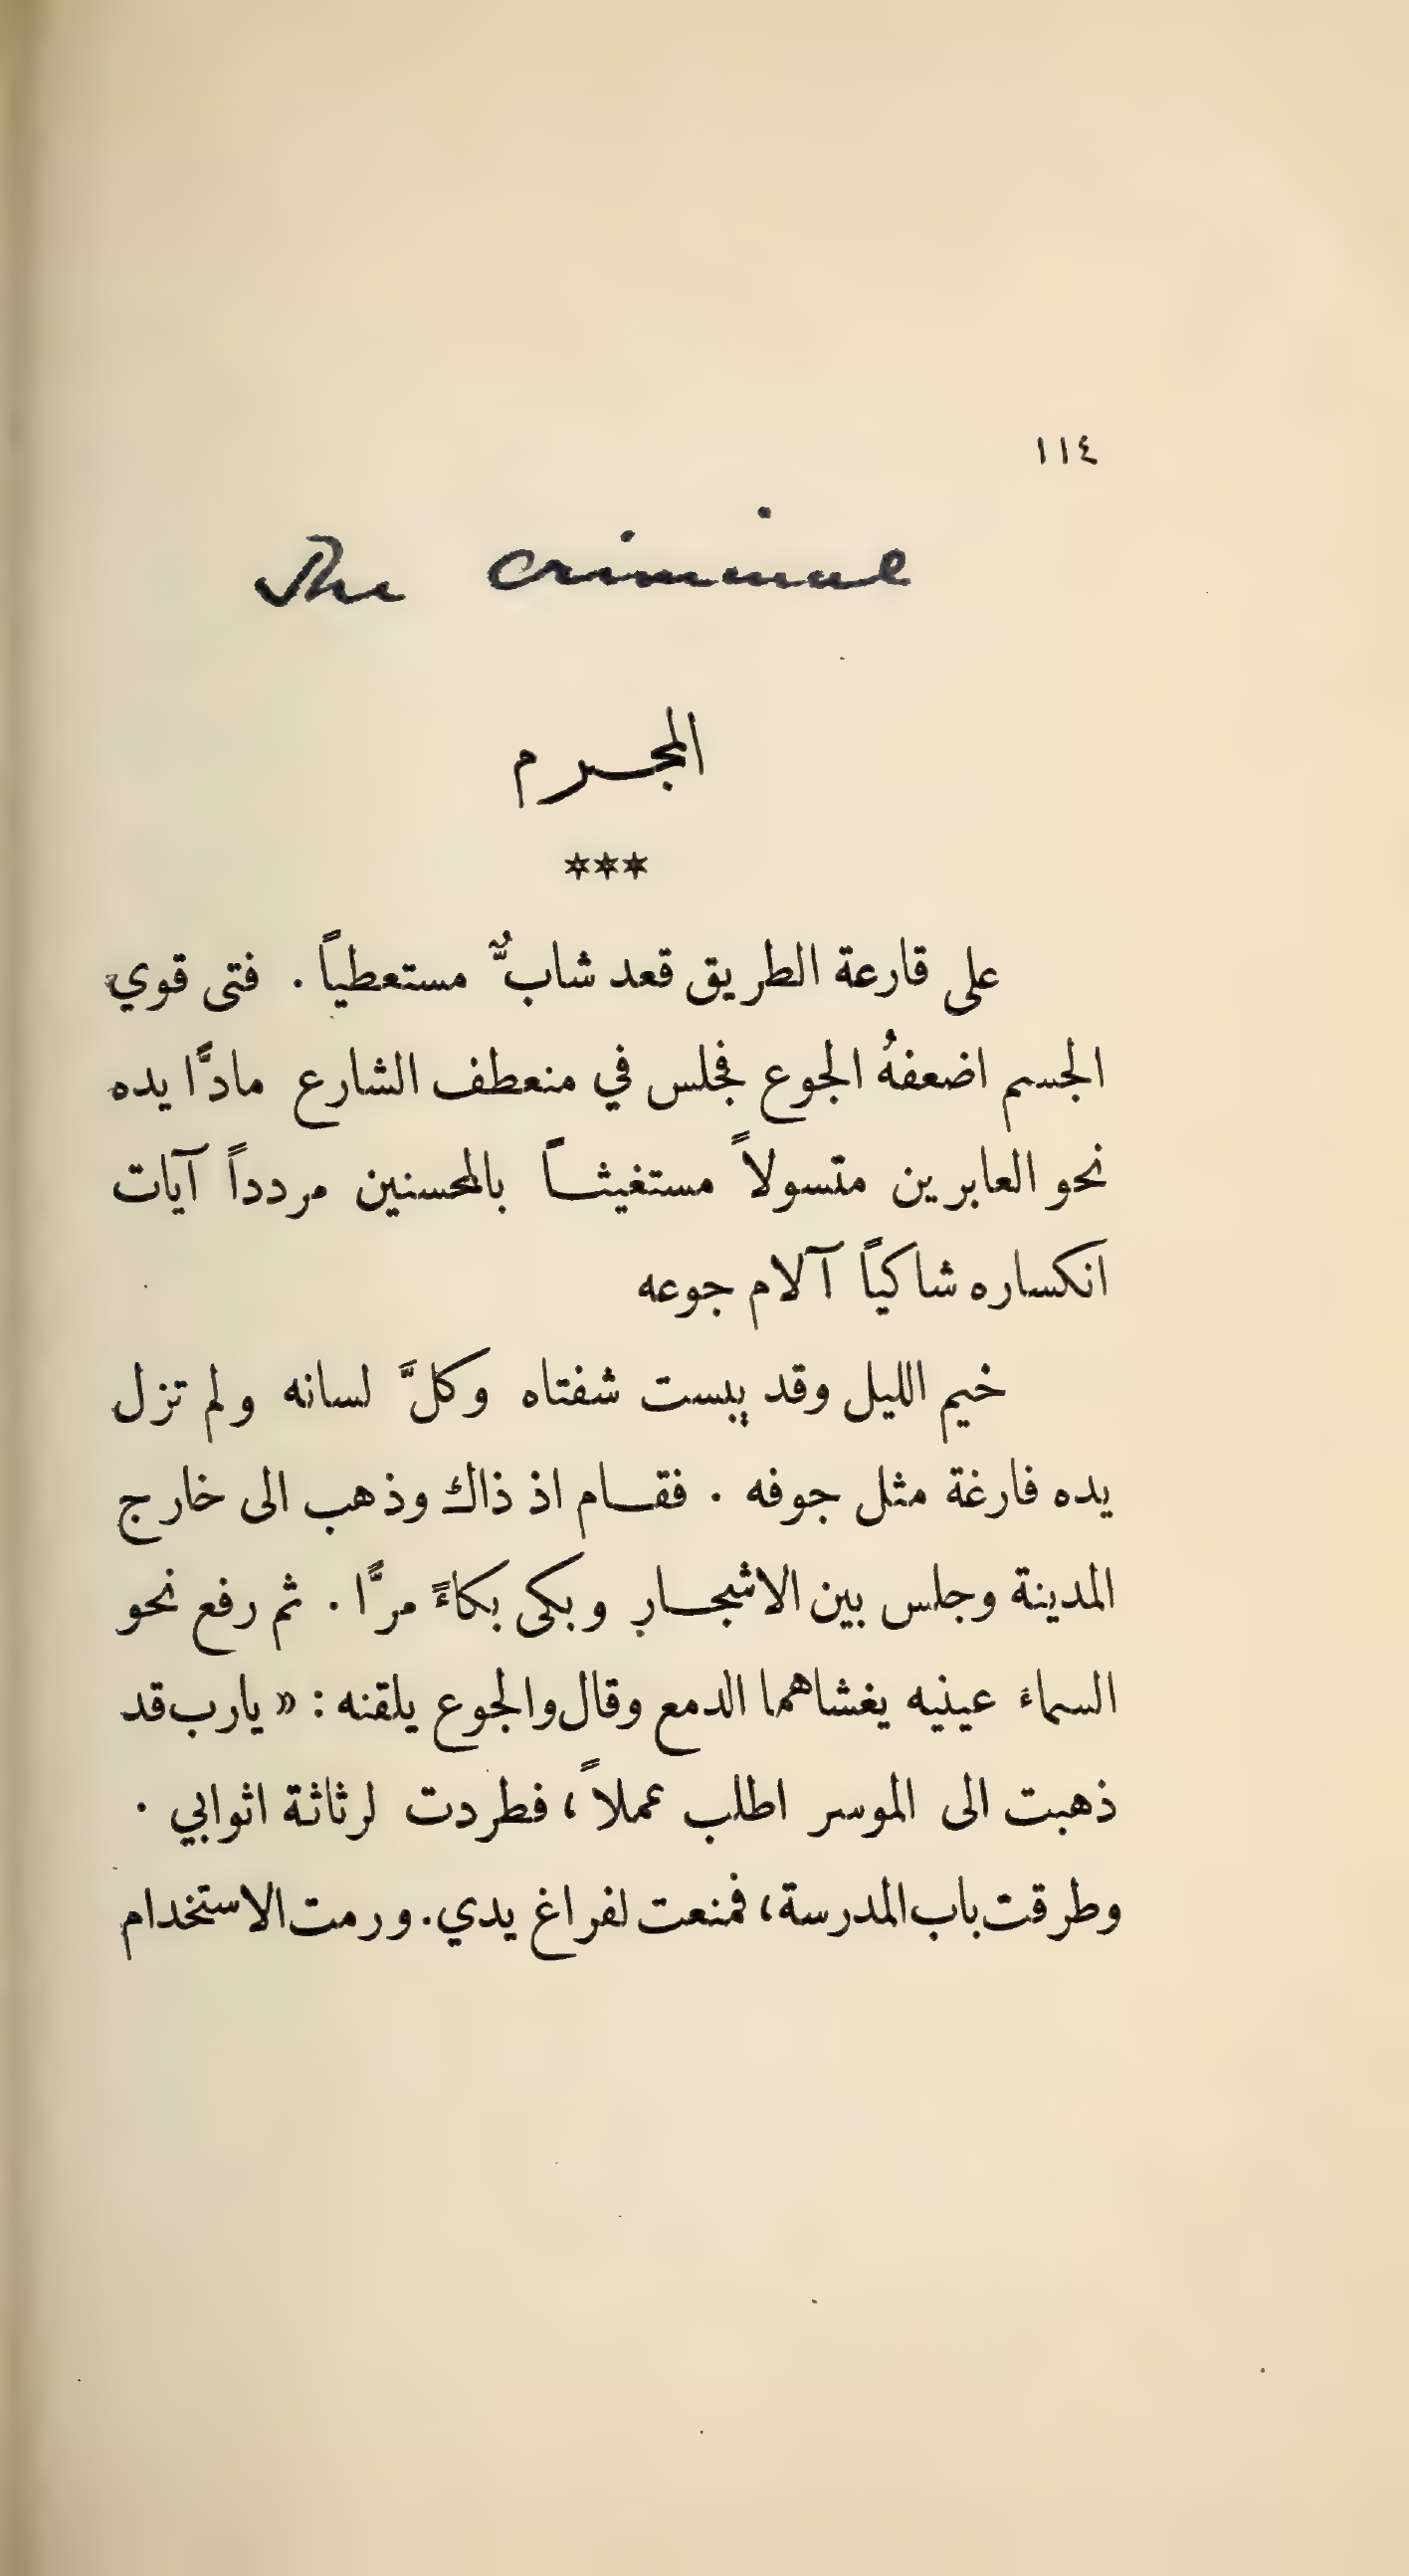 ١١٤
The Criminal
المجرم
***
على قارعة الطريق قعد شابٌّ مستعطياً . فتى قوي
الجسم اضعفهُ الجوع فجلس في منعطف الشارع مادًّا يده
نحو العابرين متسولاً مستغيثاً بالمحسنين مردداً آيات
انكساره شاكياً آلام جوعه
خيم الليل وقد يبست شفتاه وكلَّ لسانه ولم تزل
يده فارغة مثل جوفه . فقام اذ ذاك وذهب الى خارج
المدينة وجلس بين الاشجار وبكى بكاءً مرًّا . ثم رفع نحو
السماء عينيه يغشاهما الدمع وقال والجوع يلقنه : « يارب قد
ذهبت الى الموسر اطلب عملاً ، فطردت لرثاثة اثوابي .
وطرقت باب المدرسة ، فمنعت لفراغ يدي . ورمت الاستخدام